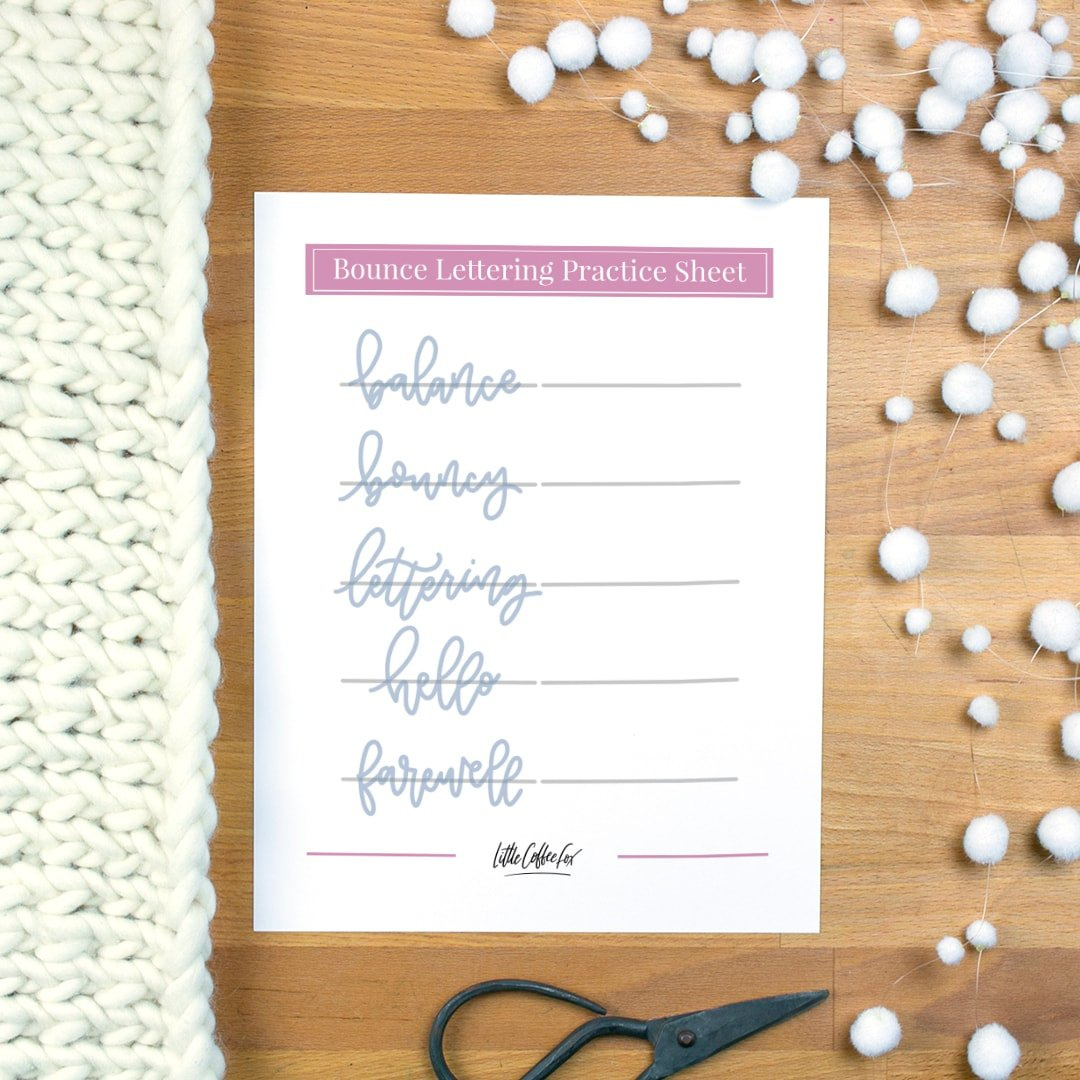 Bounce Lettering Practice Sheet
balance
bouncy
lettering
hello
farewell
Little Coffee Fox